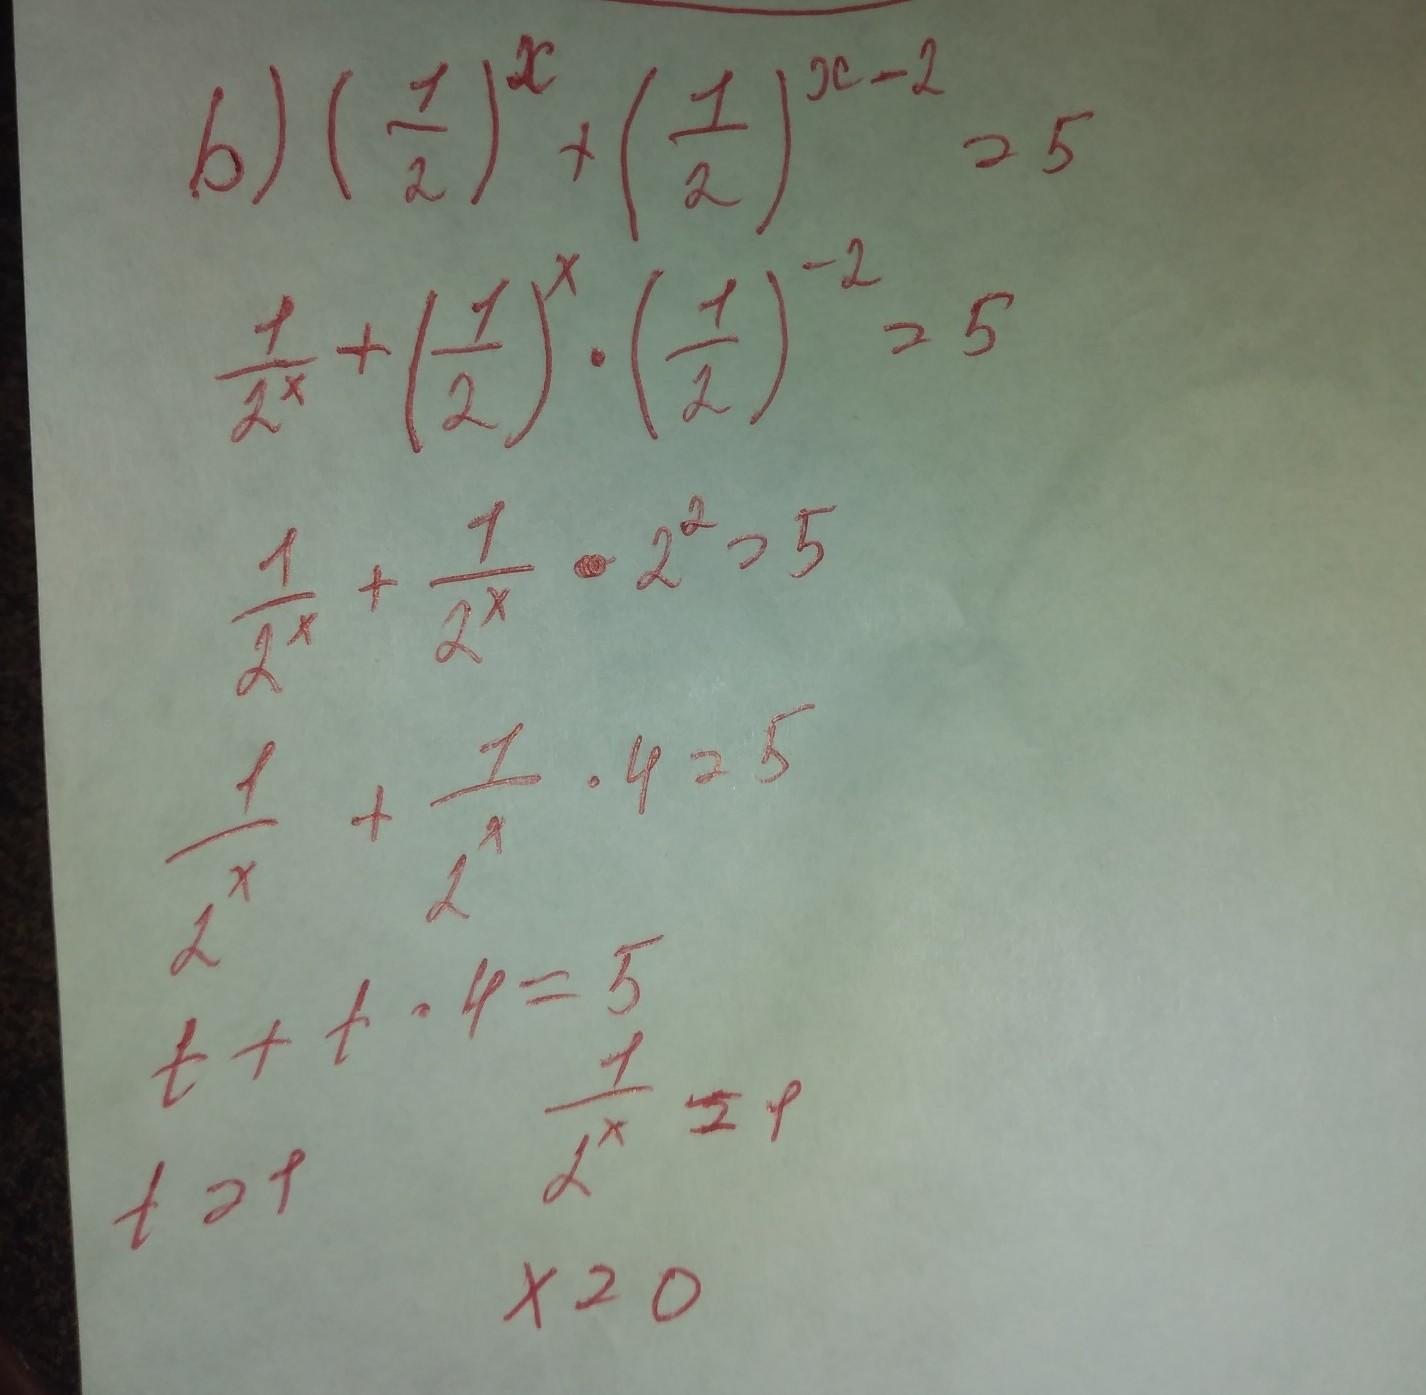 b) (1/2)^x + (1/2)^(x-2) = 5
1/2^x + (1/2)^x · (1/2)^-2 = 5
1/2^x + 1/2^x · 2^2 = 5
1/2^x + 1/2^x · 4 = 5
t + t · 4 = 5
1/2^x = 1
t = 1
x = 0